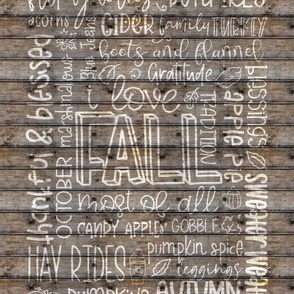 acorns CIDER family
Blue Jeans boots and flannel
marshmallows Gratitude
thankful & blessed
blessings
love
OCTOBER FALL TRADITION apple pie
most of all
CANDY APPLES GOBBLE
HAY RIDES pumpkin spice
leggings
sweater
pumpkins AUTUMN